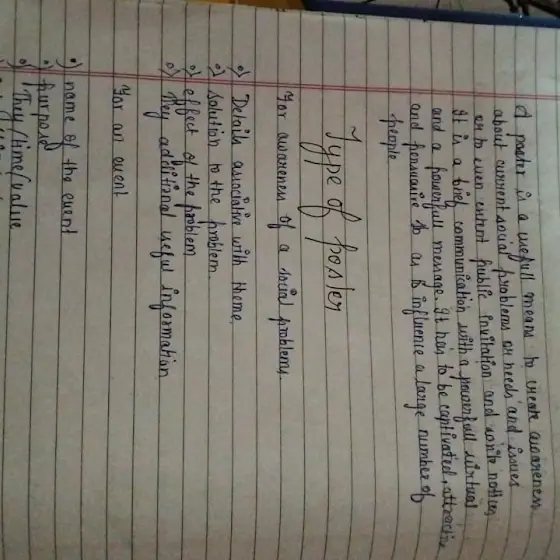 A poster is a usefull means to create awareness
about current social problems or needs and issues
or to even extent public invitation and write notices
It is a brief communication with a powerfull virtual
and a powerfull message. It has to be captivated, attractive
and persuasive so as to influence a large number of
people
Type of poster
For awareness of a social problems.
Details associative with theme.
solution to the problem.
effect of the problem
They additional useful information
For an event
name of the event
purpose
They/time/value